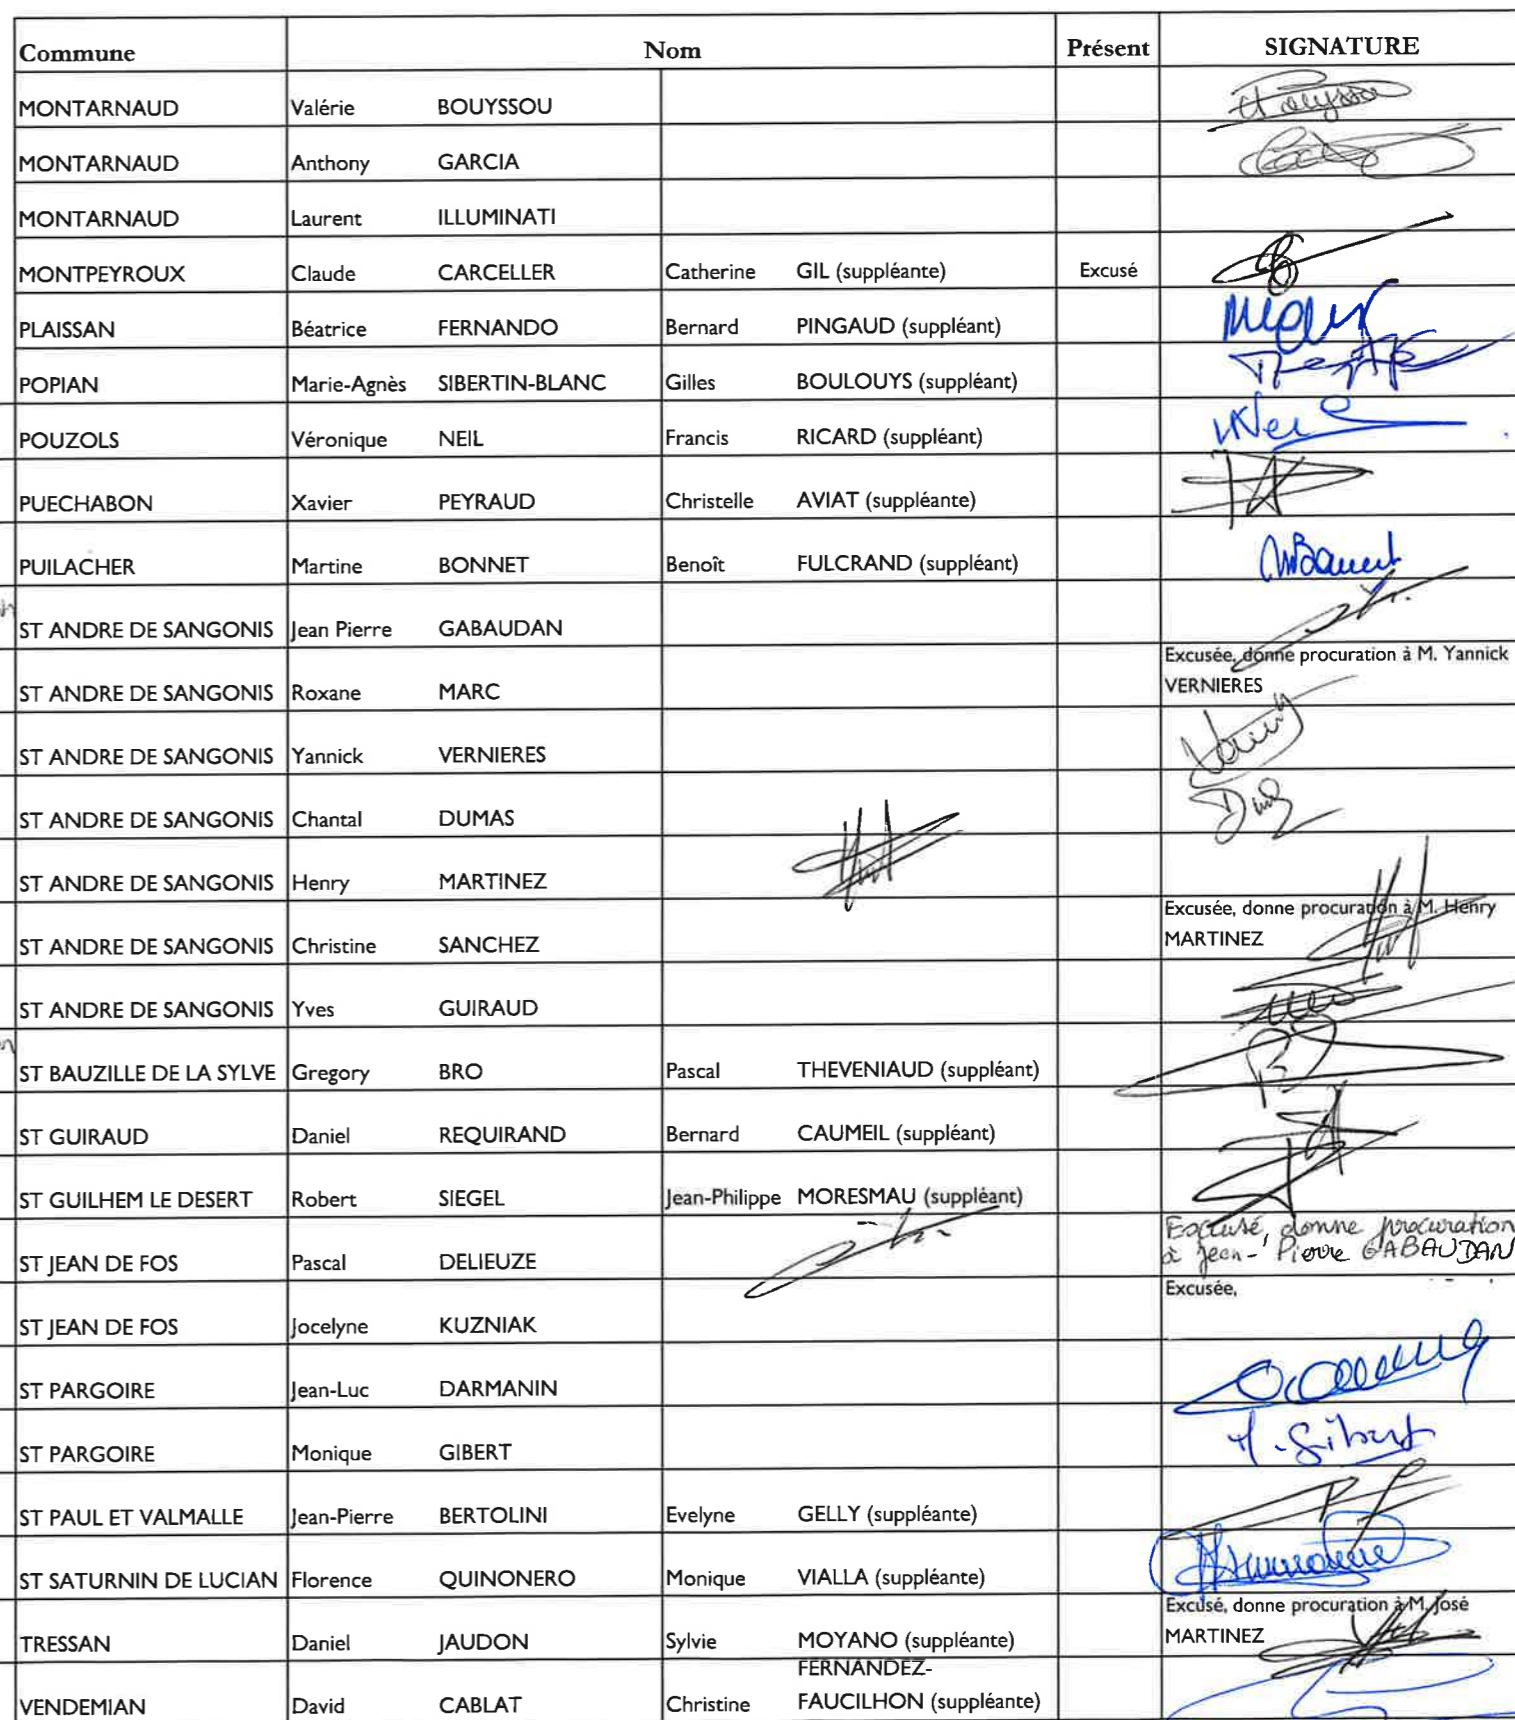 Commune Nom Présent SIGNATURE
MONTARNAUD Valérie BOUYSSOU
MONTARNAUD Anthony GARCIA
MONTARNAUD Laurent ILLUMINATI
MONTPEYROUX Claude CARCELLER Catherine GIL (suppléante) Excusé
PLAISSAN Béatrice FERNANDO Bernard PINGAUD (suppléant)
POPIAN Marie-Agnès SIBERTIN-BLANC Gilles BOULOUYS (suppléant)
POUZOLS Véronique NEIL Francis RICARD (suppléant)
PUECHABON Xavier PEYRAUD Christelle AVIAT (suppléante)
PUILACHER Martine BONNET Benoît FULCRAND (suppléant)
ST ANDRE DE SANGONIS Jean Pierre GABAUDAN
ST ANDRE DE SANGONIS Roxane MARC Excusée, donne procuration à M. Yannick
VERNIERES
ST ANDRE DE SANGONIS Yannick VERNIERES
ST ANDRE DE SANGONIS Chantal DUMAS
ST ANDRE DE SANGONIS Henry MARTINEZ
ST ANDRE DE SANGONIS Christine SANCHEZ Excusée, donne procuration à M. Henry
MARTINEZ
ST ANDRE DE SANGONIS Yves GUIRAUD
ST BAUZILLE DE LA SYLVE Gregory BRO Pascal THEVENIAUD (suppléant)
ST GUIRAUD Daniel REQUIRAND Bernard CAUMEIL (suppléant)
ST GUILHEM LE DESERT Robert SIEGEL Jean-Philippe MORESMAU (suppléant)
ST JEAN DE FOS Pascal DELIEUZE Excusé, donne procuration
à Jean-Pierre GABAUDAN
ST JEAN DE FOS Jocelyne KUZNIAK Excusée,
ST PARGOIRE Jean-Luc DARMANIN
ST PARGOIRE Monique GIBERT M. Gibert
ST PAUL ET VALMALLE Jean-Pierre BERTOLINI Evelyne GELLY (suppléante)
ST SATURNIN DE LUCIAN Florence QUINONERO Monique VIALLA (suppléante)
TRESSAN Daniel JAUDON Sylvie MOYANO (suppléante) Excusé, donne procuration à M. José
MARTINEZ
VENDEMIAN David CABLAT Christine FERNANDEZ-
FAUCILHON (suppléante)